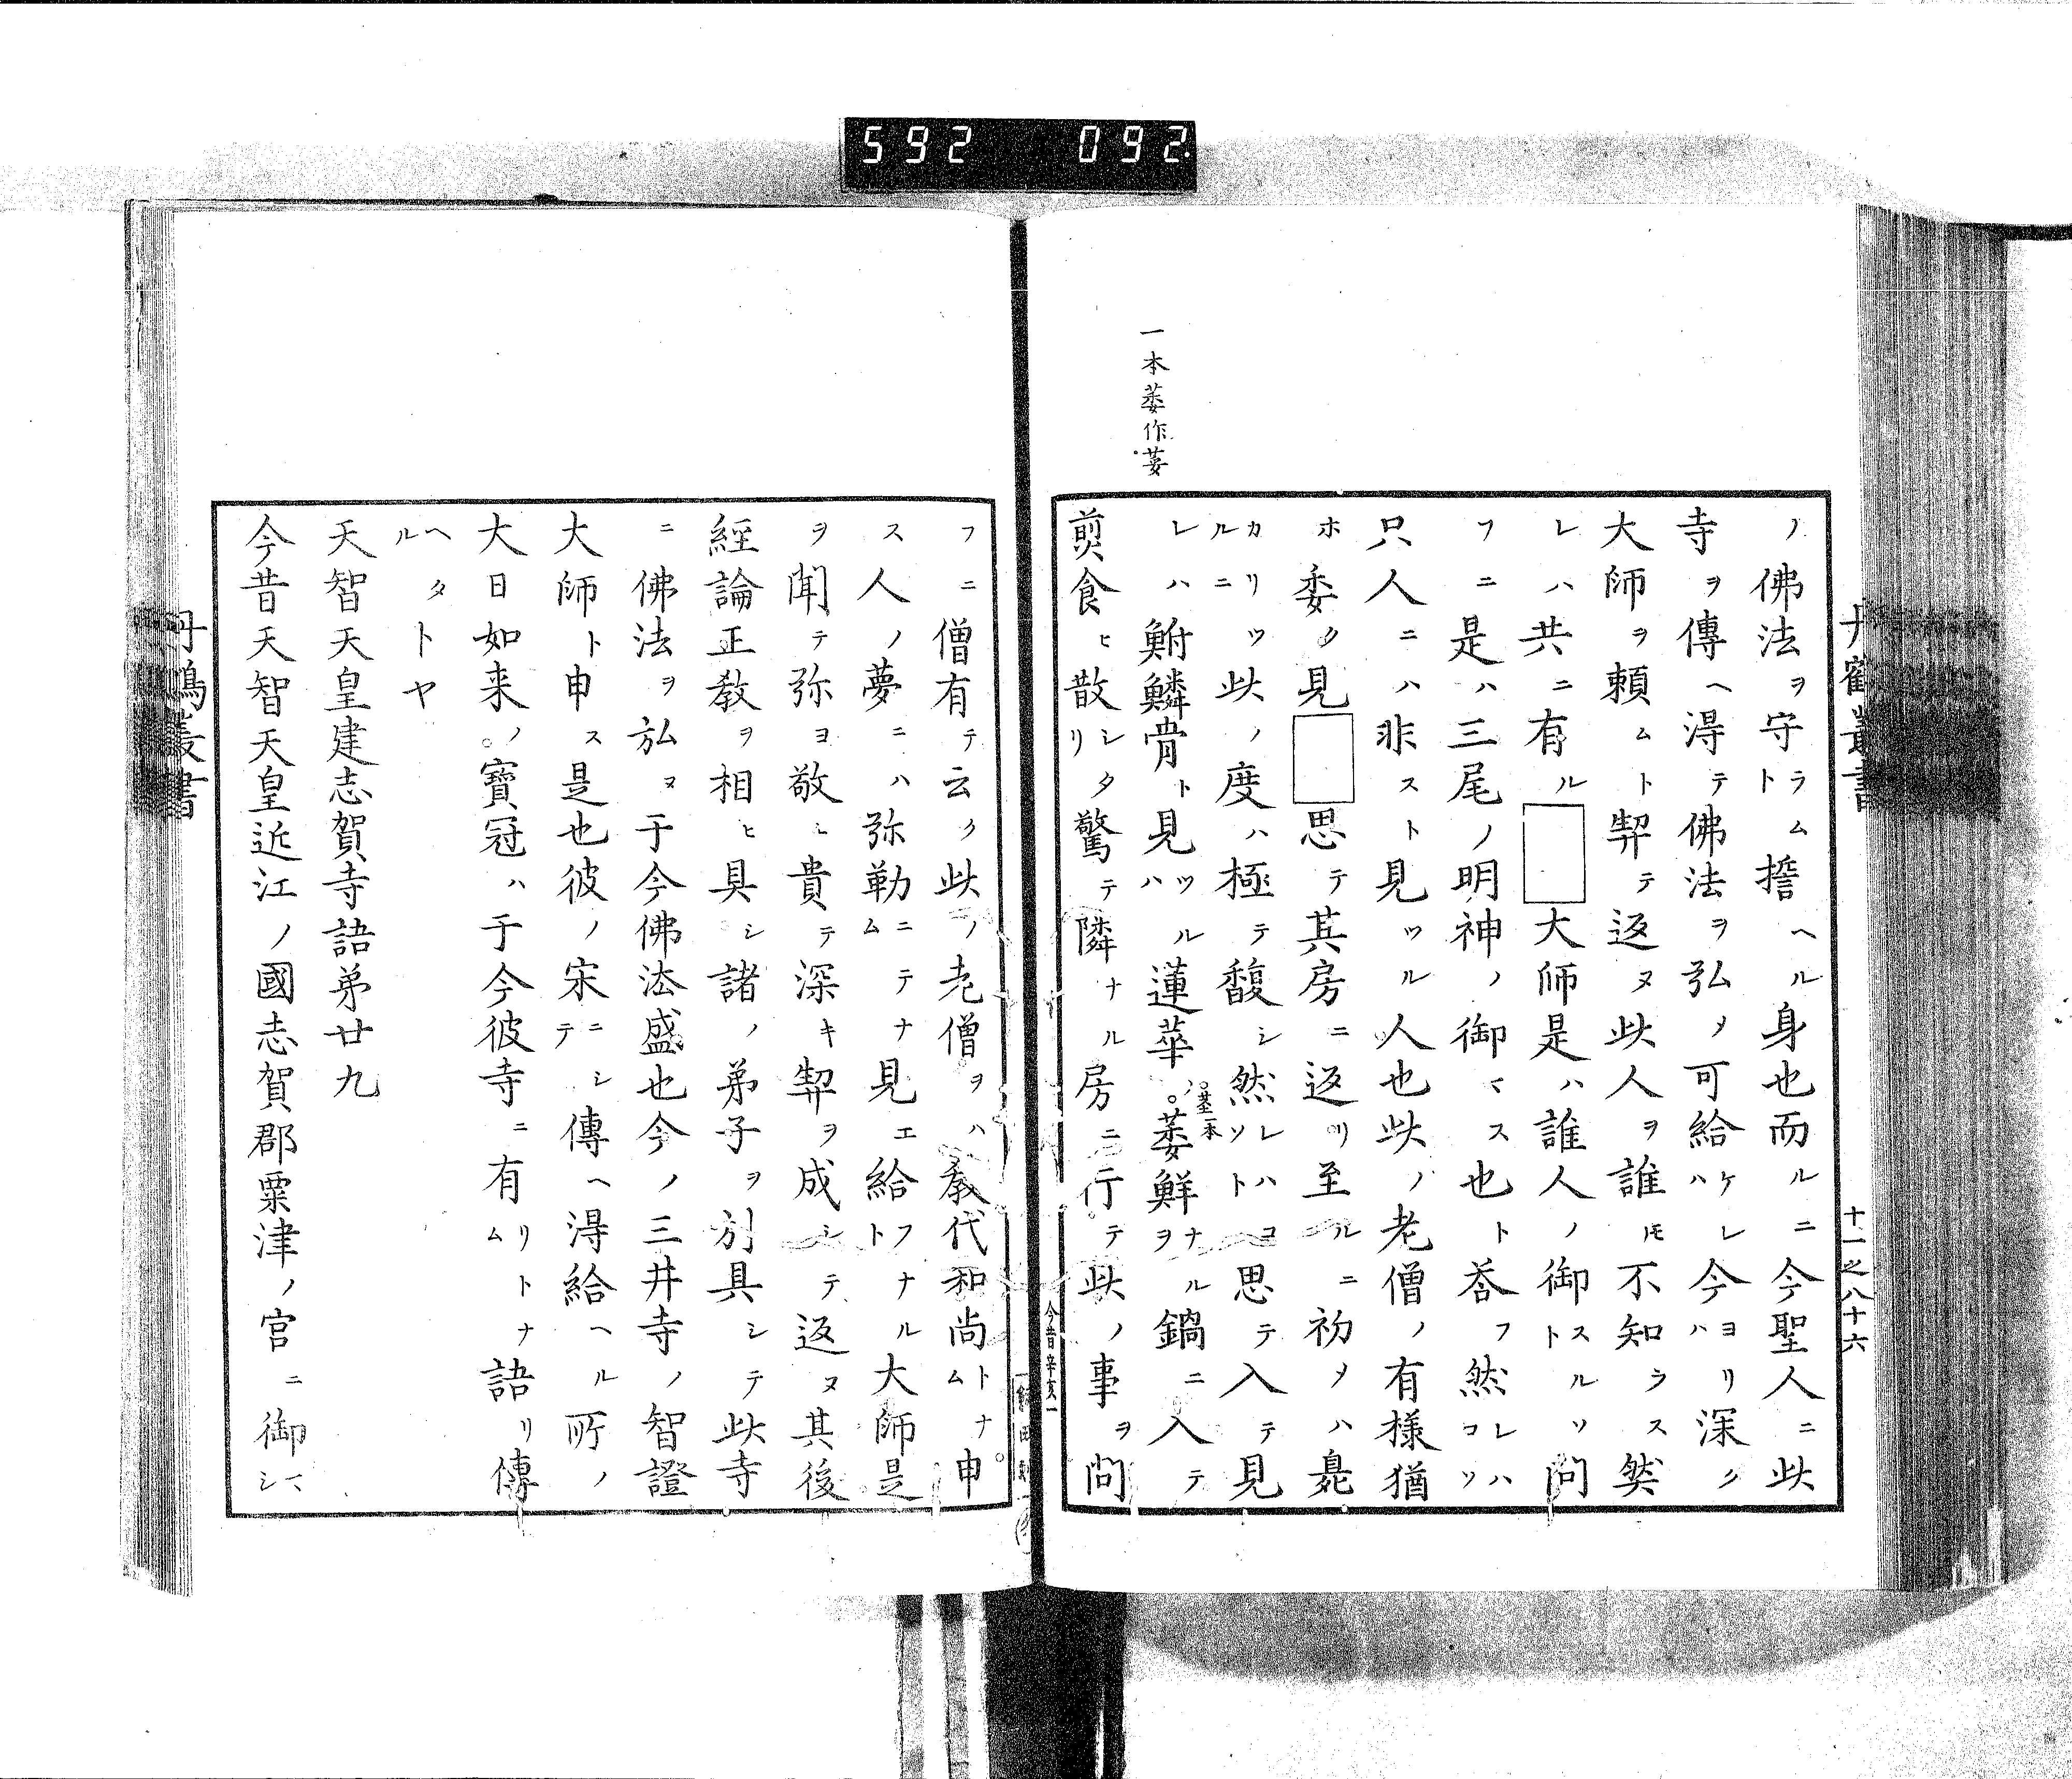 592 092
丹鶴叢書
十一之八十六
一本蔞作荽
ノ佛法ヲ守ラムト擔ヘル身也而ルニ今聖人ニ此
寺ヲ傳ヘ得テ佛法ヲ弘メ可給ケレハ今ヨリハ深ク
大師ヲ頼ムト契テ返ヌ此人ヲ誰トモ不知ラス然
レハ共ニ有ル□大師是ハ誰人ノ御スルソト問
フニ是ハ三尾ノ明神ノ御マス也ト荅フ然レハコソ
只人ニハ非ストト見ツル人也此ノ老僧ノ有様猶
ホ委ク見□思テ其房ニ返リ至ルニ初メハ㚖
カリツルニ此ノ度ハ極テ馥シ然レハソトヨ思テ入テ見
レハ鮒鱗骨ト見ツルハ蓮華ノ蔞鮮ナルヲ鍋ニ入テ
茎一本
煎食ヒ散シタリ驚テ隣ナル房ニ行テ此ノ事ヲ問
今昔辛亥一
フニ僧有テ云ク此ノ老僧ヲハ教代和尚トナム申
ス人ノ夢ニハ弥勒ニテナム見エ給フナルト大師是
ヲ聞テ弥ヨ敬ヒ貴テ深キ契ヲ成シテ返ヌ其後
經論正教ヲ相ヒ具シ諸ノ弟子ヲ引具シテ此寺
ニ佛法ヲ弘ヌ于今佛法盛也今ノ三井寺ノ智證
大師ト申ス是也彼ノ宋ニシテシ傳ヘ得給ヘル所ノ
大日如来ノ寶冠ハ于今彼寺ニ有リトナム語リ傳
ヘタルトヤ
天智天皇建志賀寺語弟廿九
今昔天智天皇近江ノ國志賀郡粟津ノ宮ニ御マシ
丹鶴叢書